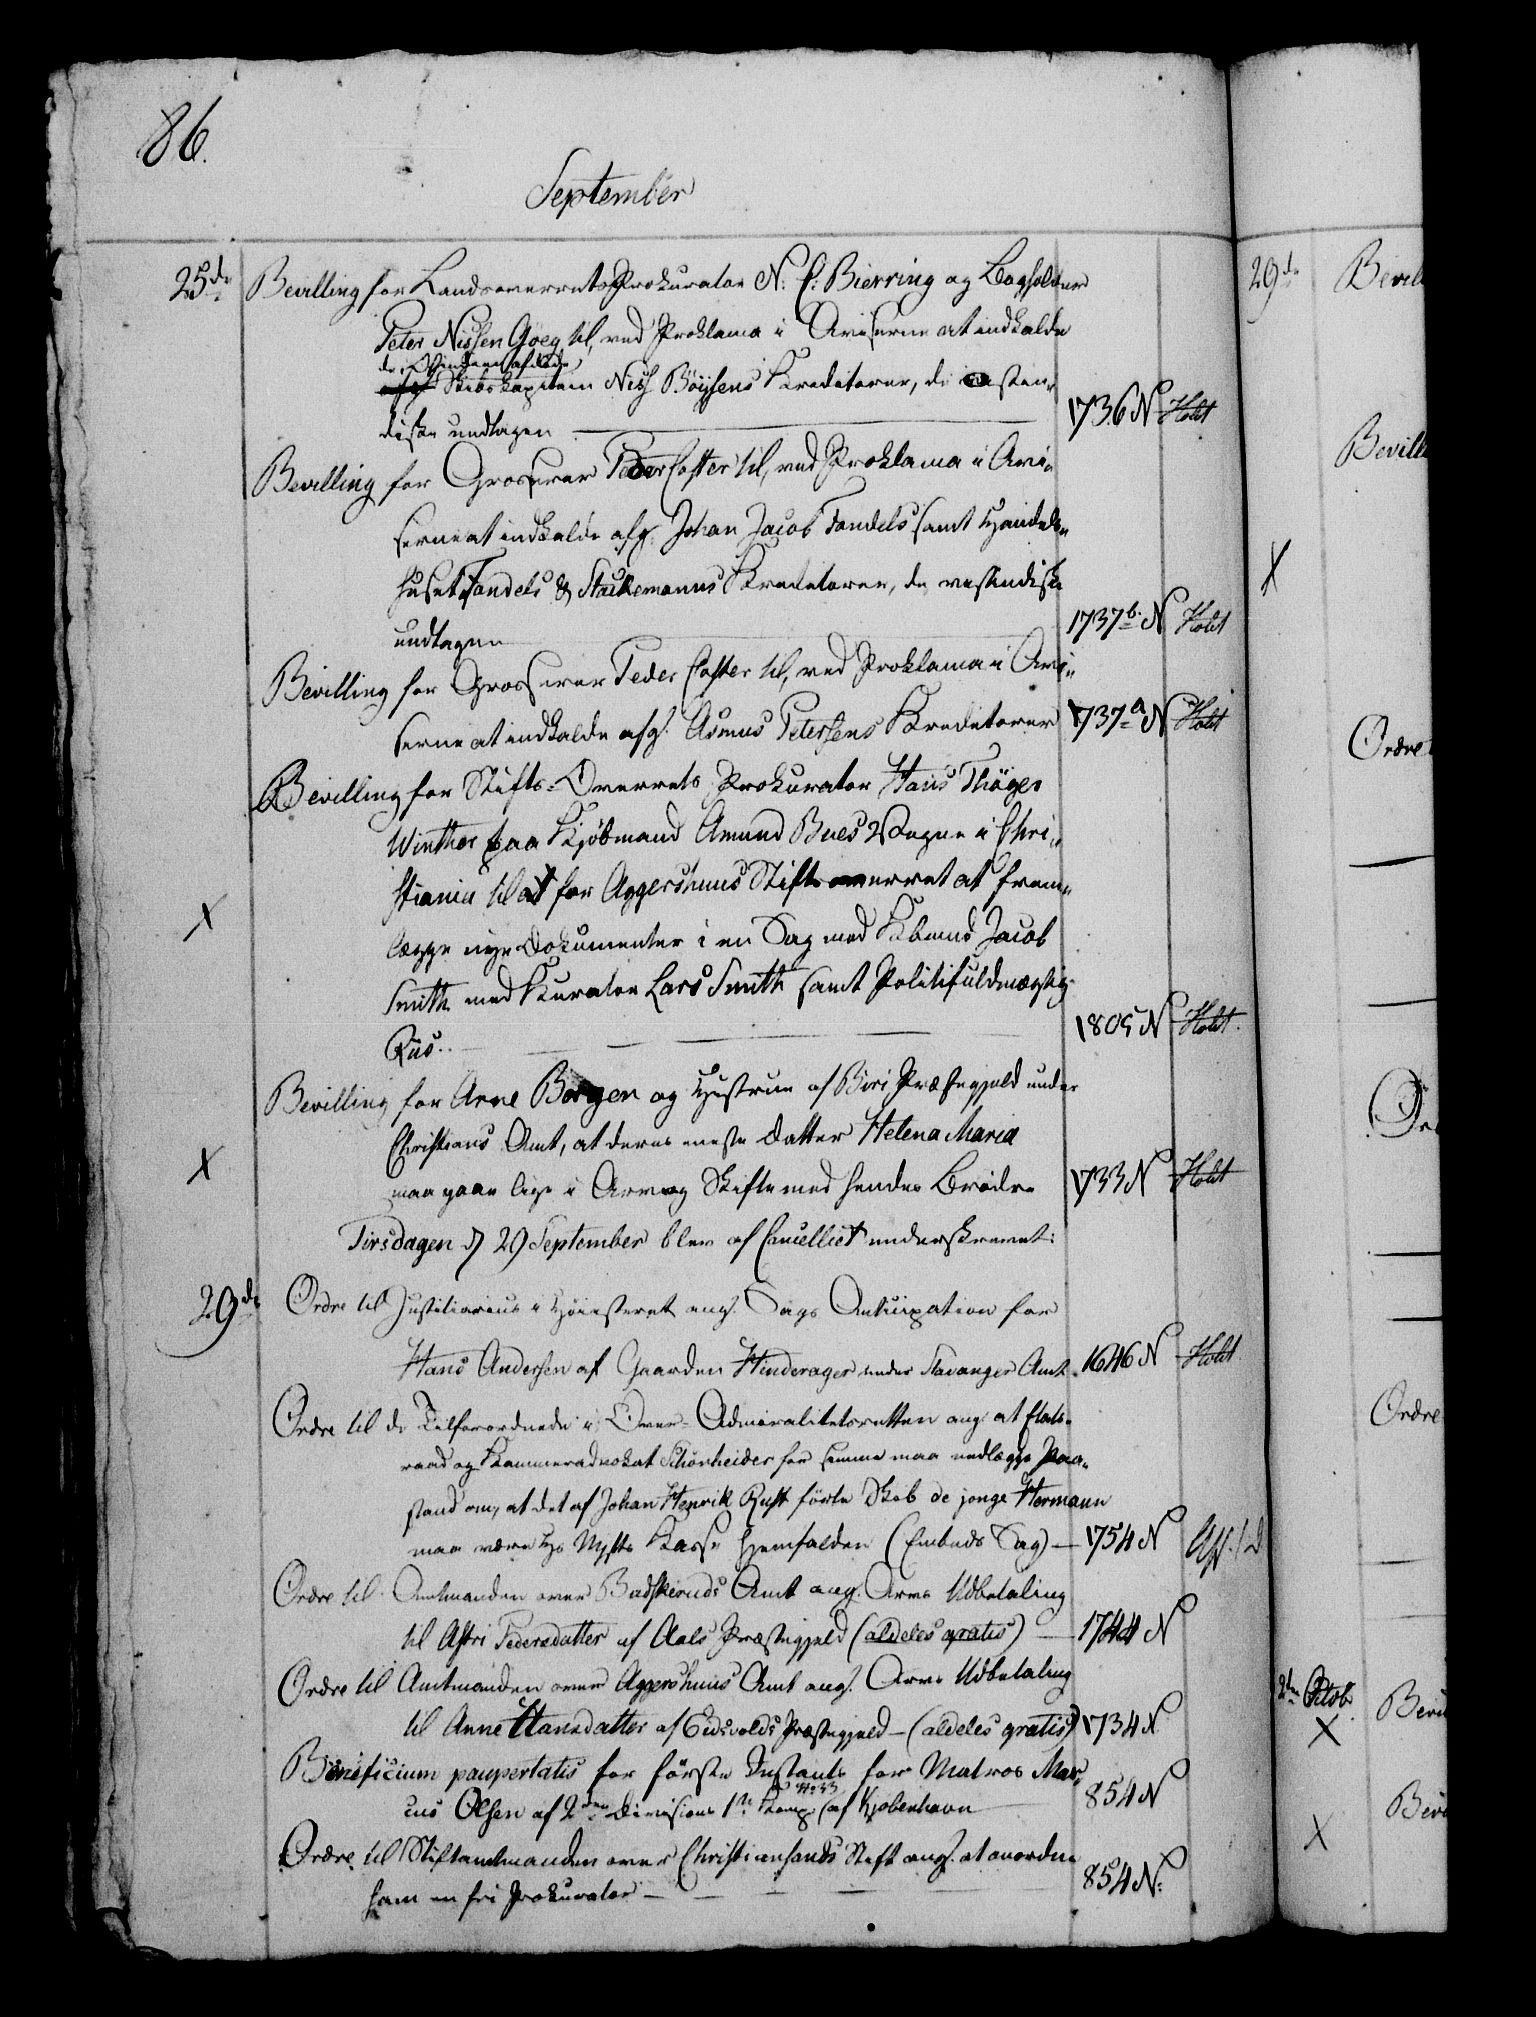 86.
September
25de Bevilling for Landsoverrets Prokurator N. C. Bierring og Bogholder
Peter Nissen Goeg til, ved Proklama i Aviserne at indkalde
de i afdøde
Skibskapitain Niss Böysens Kreditorer, de ostin-
diske undtagen 1736 N Holst
Bevilling for Grosserer Peder Coster til, ved Proklama i Avi-
serne at indkalde afg. Johan Jacob Tandels samt Handels-
huset Tandels & Stackemanns Kreditorer, de vestindiske
undtagen 1737 b. N Holst
Bevilling for Grosserer Peder Coster til, ved Proklama i Avi-
serne at indkalde afg. Asmus Petersens Kreditorer 1737 a N Holst
Bevilling for Stifts-Overrets Prokurator Hans Thöger
Winther paa Kjøbmand Amund Bues Vegne i Chri-
stiania til at for Aggershuus Stiftsoverret at frem-
lægge nye Dokumenter i en Sag med Kbmd Jacob
Smith med Kurator Lars Smith samt Politifuldmægtig
Riis. 1805 N Holst.
Bevilling for Arne Borgen og Hustrue af Biri Præstegjeld under
Christians Amt, at deres eneste Datter Helena Maria
maa gaae lige i Arv og Skifte med hendes Brødre 1733 N Holst
Tirsdagen d 29 September blev af Cancelliet underskrevet:
29de Ordre til Justitiarius i Høiesteret ang. Sags Anticipation for
Hans Andersen af Gaarden Hinderager under Stavanger Amt 1646 N Holst
Ordre til de Tilforordnede i Over-Admiralitetsretten ang. at Etats-
raad og Kammeradvokat Schönheider for samme maa nedlægge Paa-
stand om, at det af Johan Henrik Rust förte Skib de jonge Hermann
maa være Hs Mjsts Kasse hjemfalden (Embeds Sag) 1754 N
Ordre til Amtmanden over Budskeruds Amt ang. Arvs Udbetaling
til Astri Pedersdatter af Aals Præstegjeld (aldeles gratis) 1744 N
Ordre til Amtmanden over Aggershuus Amt ang. Arvs Udbetaling
til Anne Hansdatter af Eidsvolds Præstegjeld (aldeles gratis) 1734 N
Beneficium paupertatis for förste Instants for Matros Mar-
cus Olsen af 2den Divisions 1ste Komp. af Kjøbenhavn 854 N
Ordre til Stiftamtmanden over Christiansands Stift ang. at anordne
ham en fri Prokurator 854 N.
29de Bevil
Bevill
Ordre
Or
Ordre
2den Octob. Bevi
Bevi